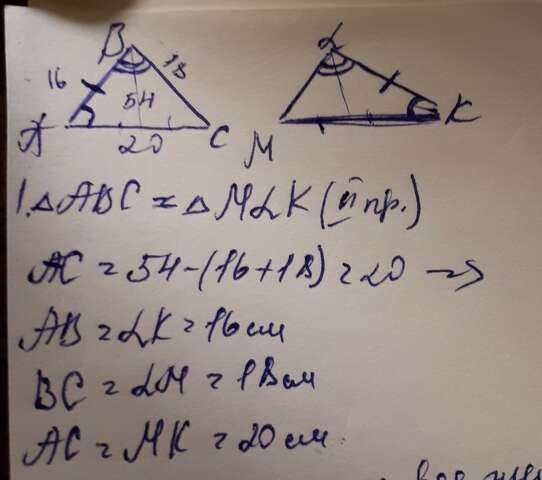 B
L
16
18
54
A
20
C
M
K
1. △ABC = △MLK (II пр.)
AC = 54 - (16 + 18) = 20 →
AB = LK = 16 см
BC = LM = 18 см
AC = MK = 20 см